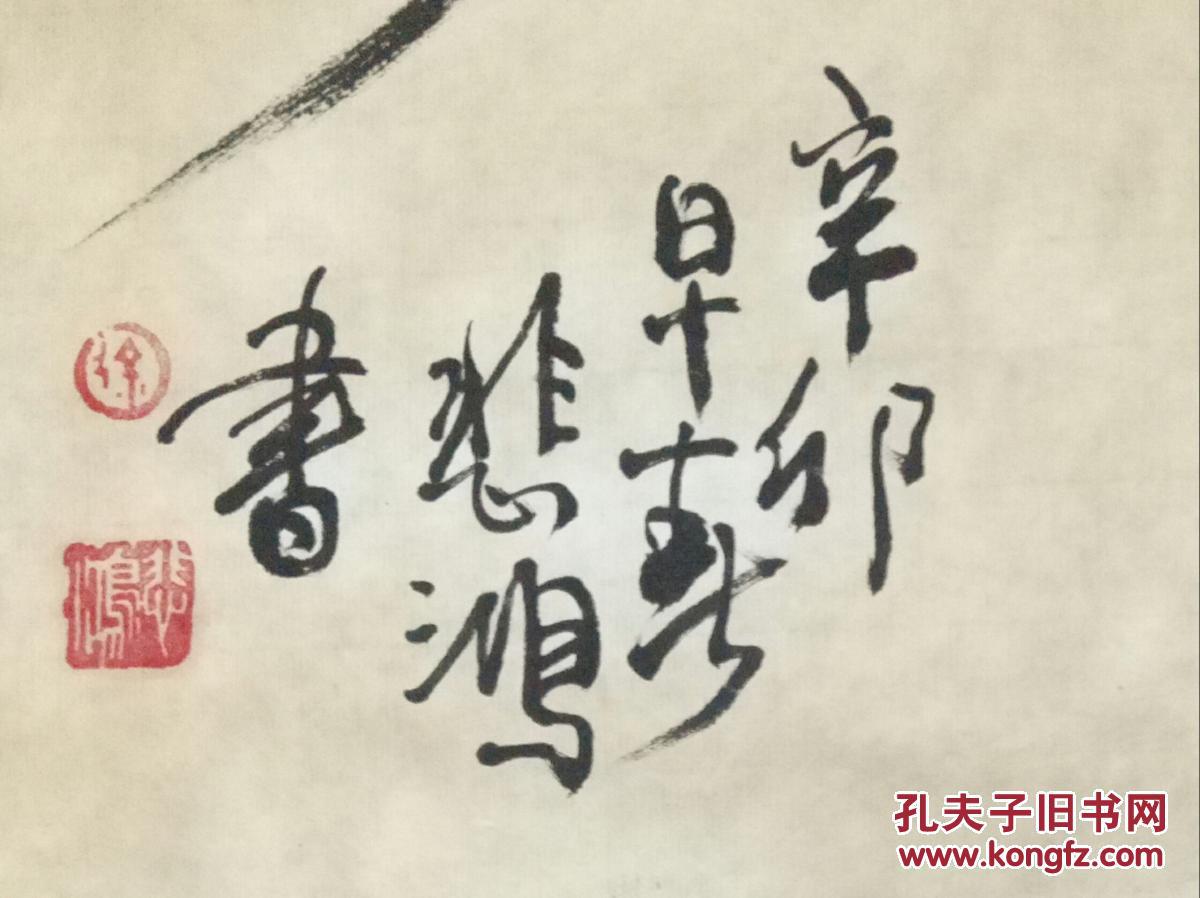 辛卯
早春
悲鴻
書
徐
悲鴻
孔夫子旧书网
www.kongfz.com